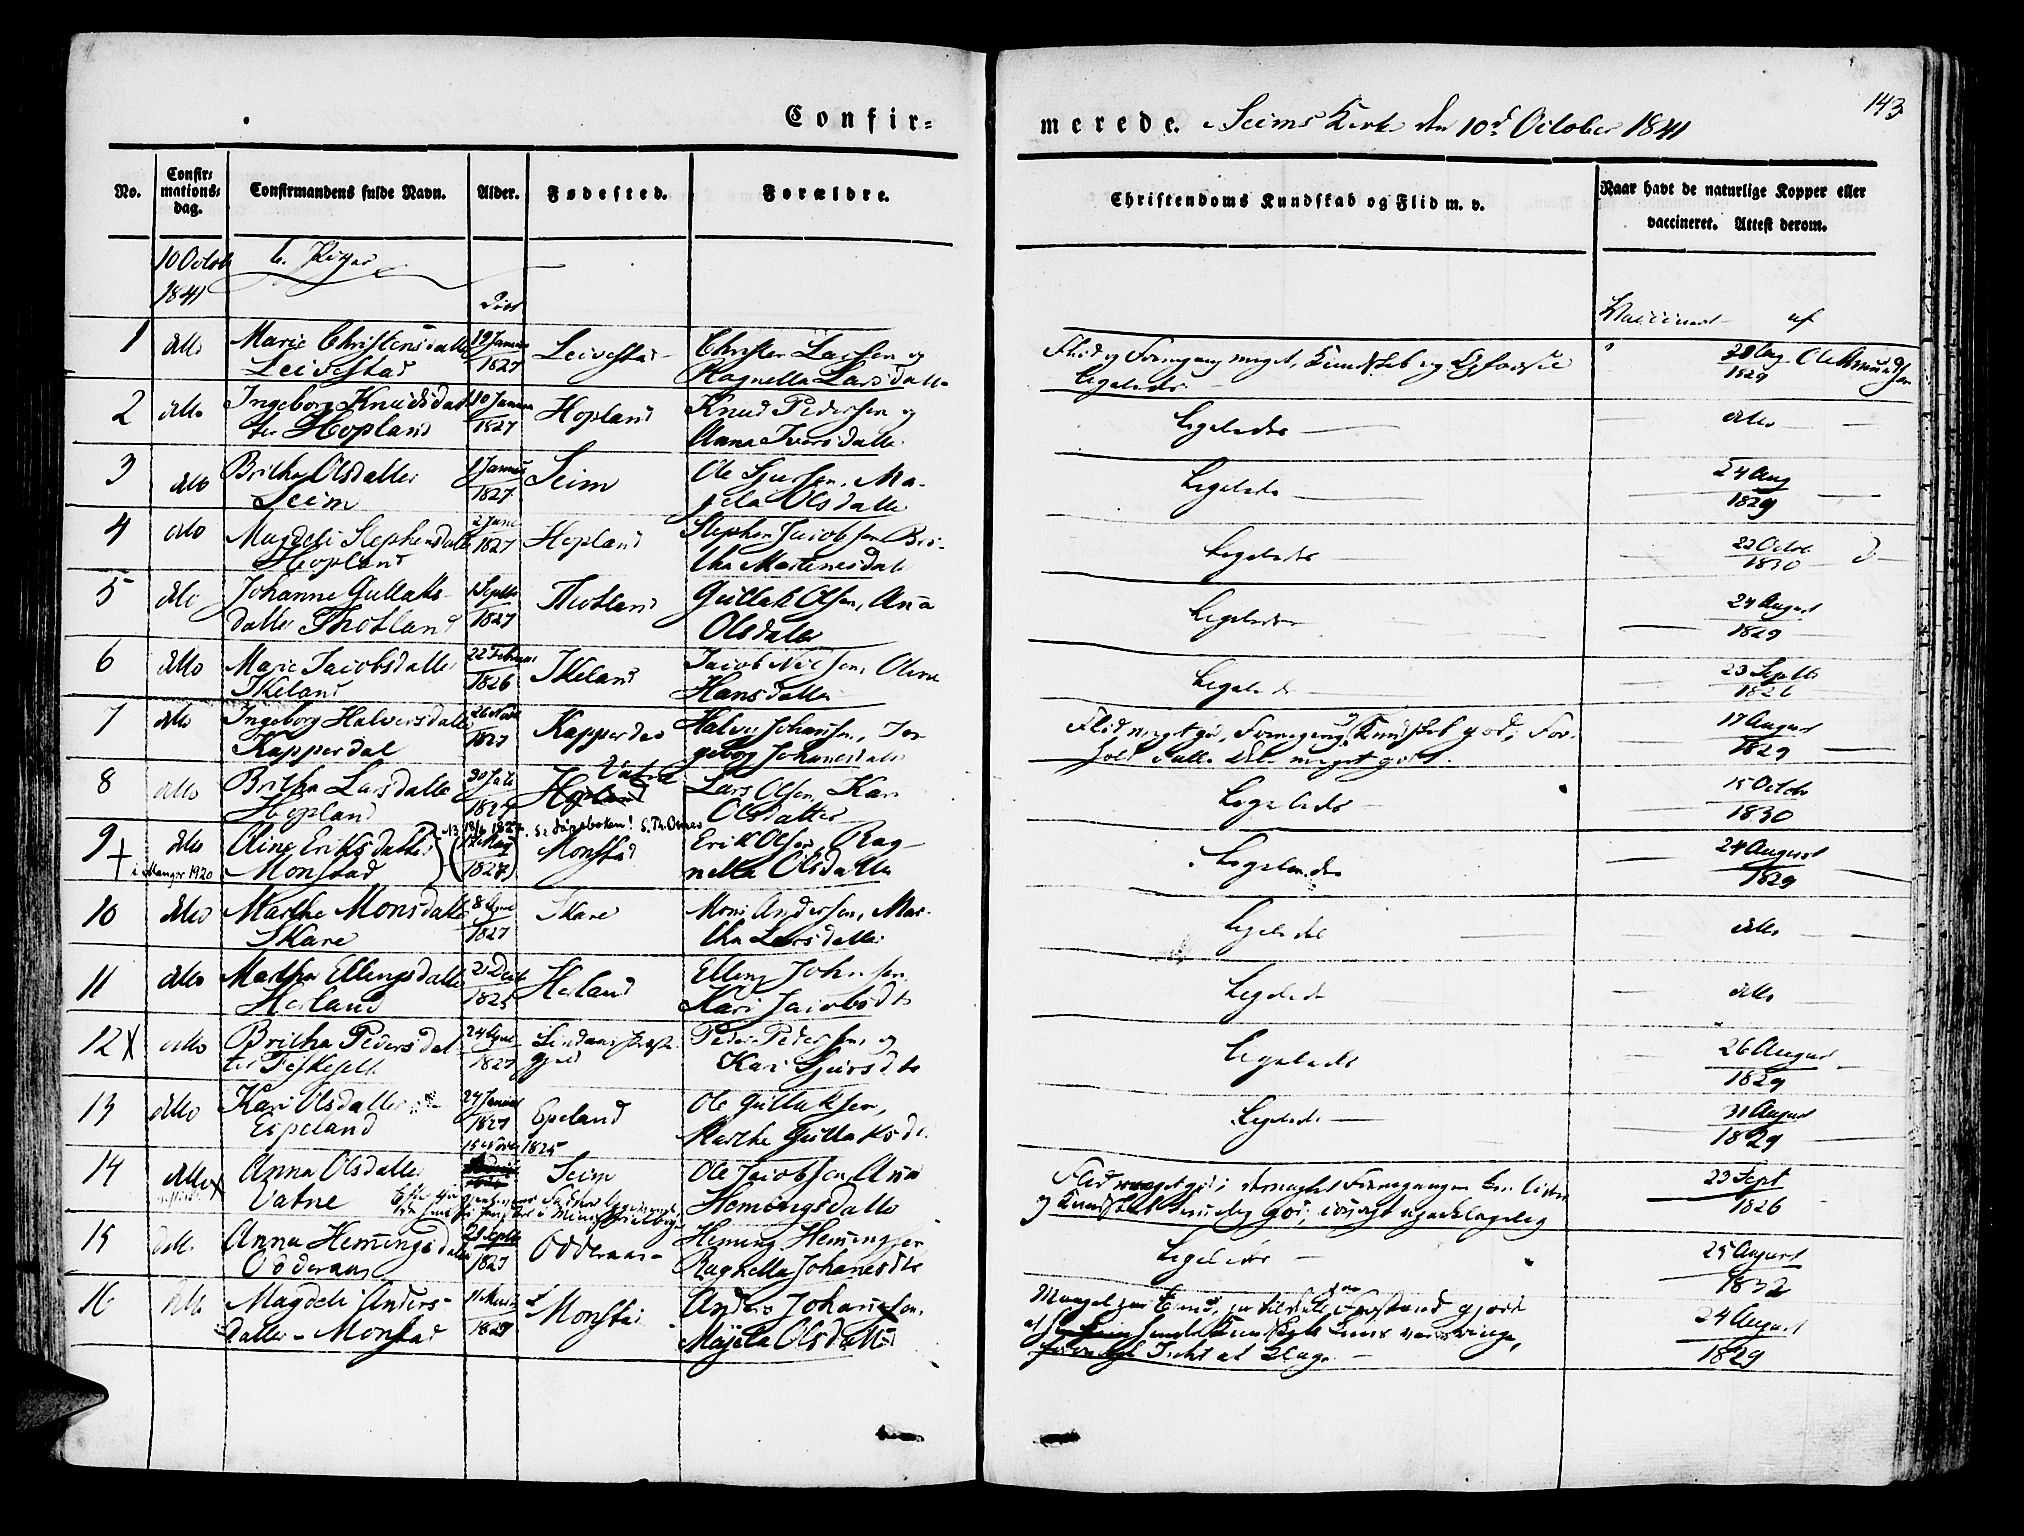 143
Confir=
merede. i Seims Kirke den 10d October 1841
No.
Confir=
mations=
dag.
Confirmandens fulde Navn.
Alder.
Fødested.
Forældre.
Christendoms Kundskab og Flid m. v.
Naar havt de naturlige Kopper eller
vaccineret. Attest derom.
10 Octob
1841
b. Piger
Født
Vaccineret af
1 ditto Marie Christensdatter
Leivestad
19 Januar
1827
Leivestad
Christen Larsen og
Ragnella Larsdatter
Flid og Fremgang meget, Kundskab og
ligeledes
28 Aug
1829
Ole Knudsen
2 ditto Ingeborg Knudsdat
ter Hopland
10 Januar
1827
Hopland
Knud Pedersen og
Anna Iversdatter
Ligeledes
ditto
3 ditto Britha Olsdatter
Seim
1 Januar
1827
Seim
Ole Sjursen, Ma-
jela Olsdatter
Ligeledes
24 Aug
1829
4 ditto Magdeli Stephensdatter
Hopland
2 Juni
1827
Hopland
Stephen Jacobsen Bri-
tha Martinesdatt
Ligeledes
22 Octob
1830
5 ditto Johanne Gullaks-
datter Thotland
1 Septb
1827
Thotland
Gullak Olsen, Ana
Olsdatter
Ligeledes
24 August
1829
6 ditto Marie Jacobsdatter
Ikeland
22 Februar
1826
Ikeland
Jacob Nilsen, Oline
Hansdatter
Ligeledes
23 Septb
1826
7 ditto Ingeborg Halversdatter
Kapperdal
26 Novb
1827
Kapperdal
Halver Johansen, In
geborg Johannesdatt
Flid meget god, Fremgang og Kundskab god, For-
hold meget godt.
17 August
1829
8 ditto Britha Larsdatter
Hopland
30 Juli
1827
Vatne
Hopland
Lars Olsen, Kari
Olsdatter
Ligeledes
15 Octob
1830
9 + ditto Oline Eriksdatter
Monstad
i Manger 1920
N3 13/6 1827. Se dåpsboken! S. Th. Osnes
12 May
1827
Monstad
Erik Olsen, Rag-
nella Olsdatter
Ligeledes
24 August
1829
10 ditto Marthe Monsdatter
Skare
8 April
1827
Skare
Mons Andersen, Mar-
tha Larsdatter
Ligeledes
ditto
11 ditto Martha Ellingsdatter
Herland
21 Decb
1825
Herland
Elling Johnsen
Kari Jacobsdtr
Ligeledes
ditto
12 X ditto Britha Pedersdat
ter Feskesett
24 April
1827
Lindaas Præste
gjeld
Peder Pedersen og
Kari Sjursdtr
Ligeledes
26 August
1829
13 ditto Kari Olsdatter
Espeland
27 Januar
1827
Epeland
Ole Gullaksen,
Marthe Gullaksd.
Ligeledes
31 August
1829
14 ditto X Anna Olsdatter
Vatne
15 Novbr 1825
Seim
Ole Jacobsen, Ana
Hemingsdatter
Flid meget god,
og Kundskab
23 Sept
1826
15 ditto Anna Hemingsdatter
Odderaas
28 Septb
1827
Odderaas
Heming Hemingsen
Ragnella Johanesdtr
Ligeledes
25 August
1832
16 ditto Magdeli Anders-
datter Monstad
11 Marts
1827
Monstad
Anders Johannesen,
Majela Olsdatter
Mangel paa
Intet at klage
24 August
1829